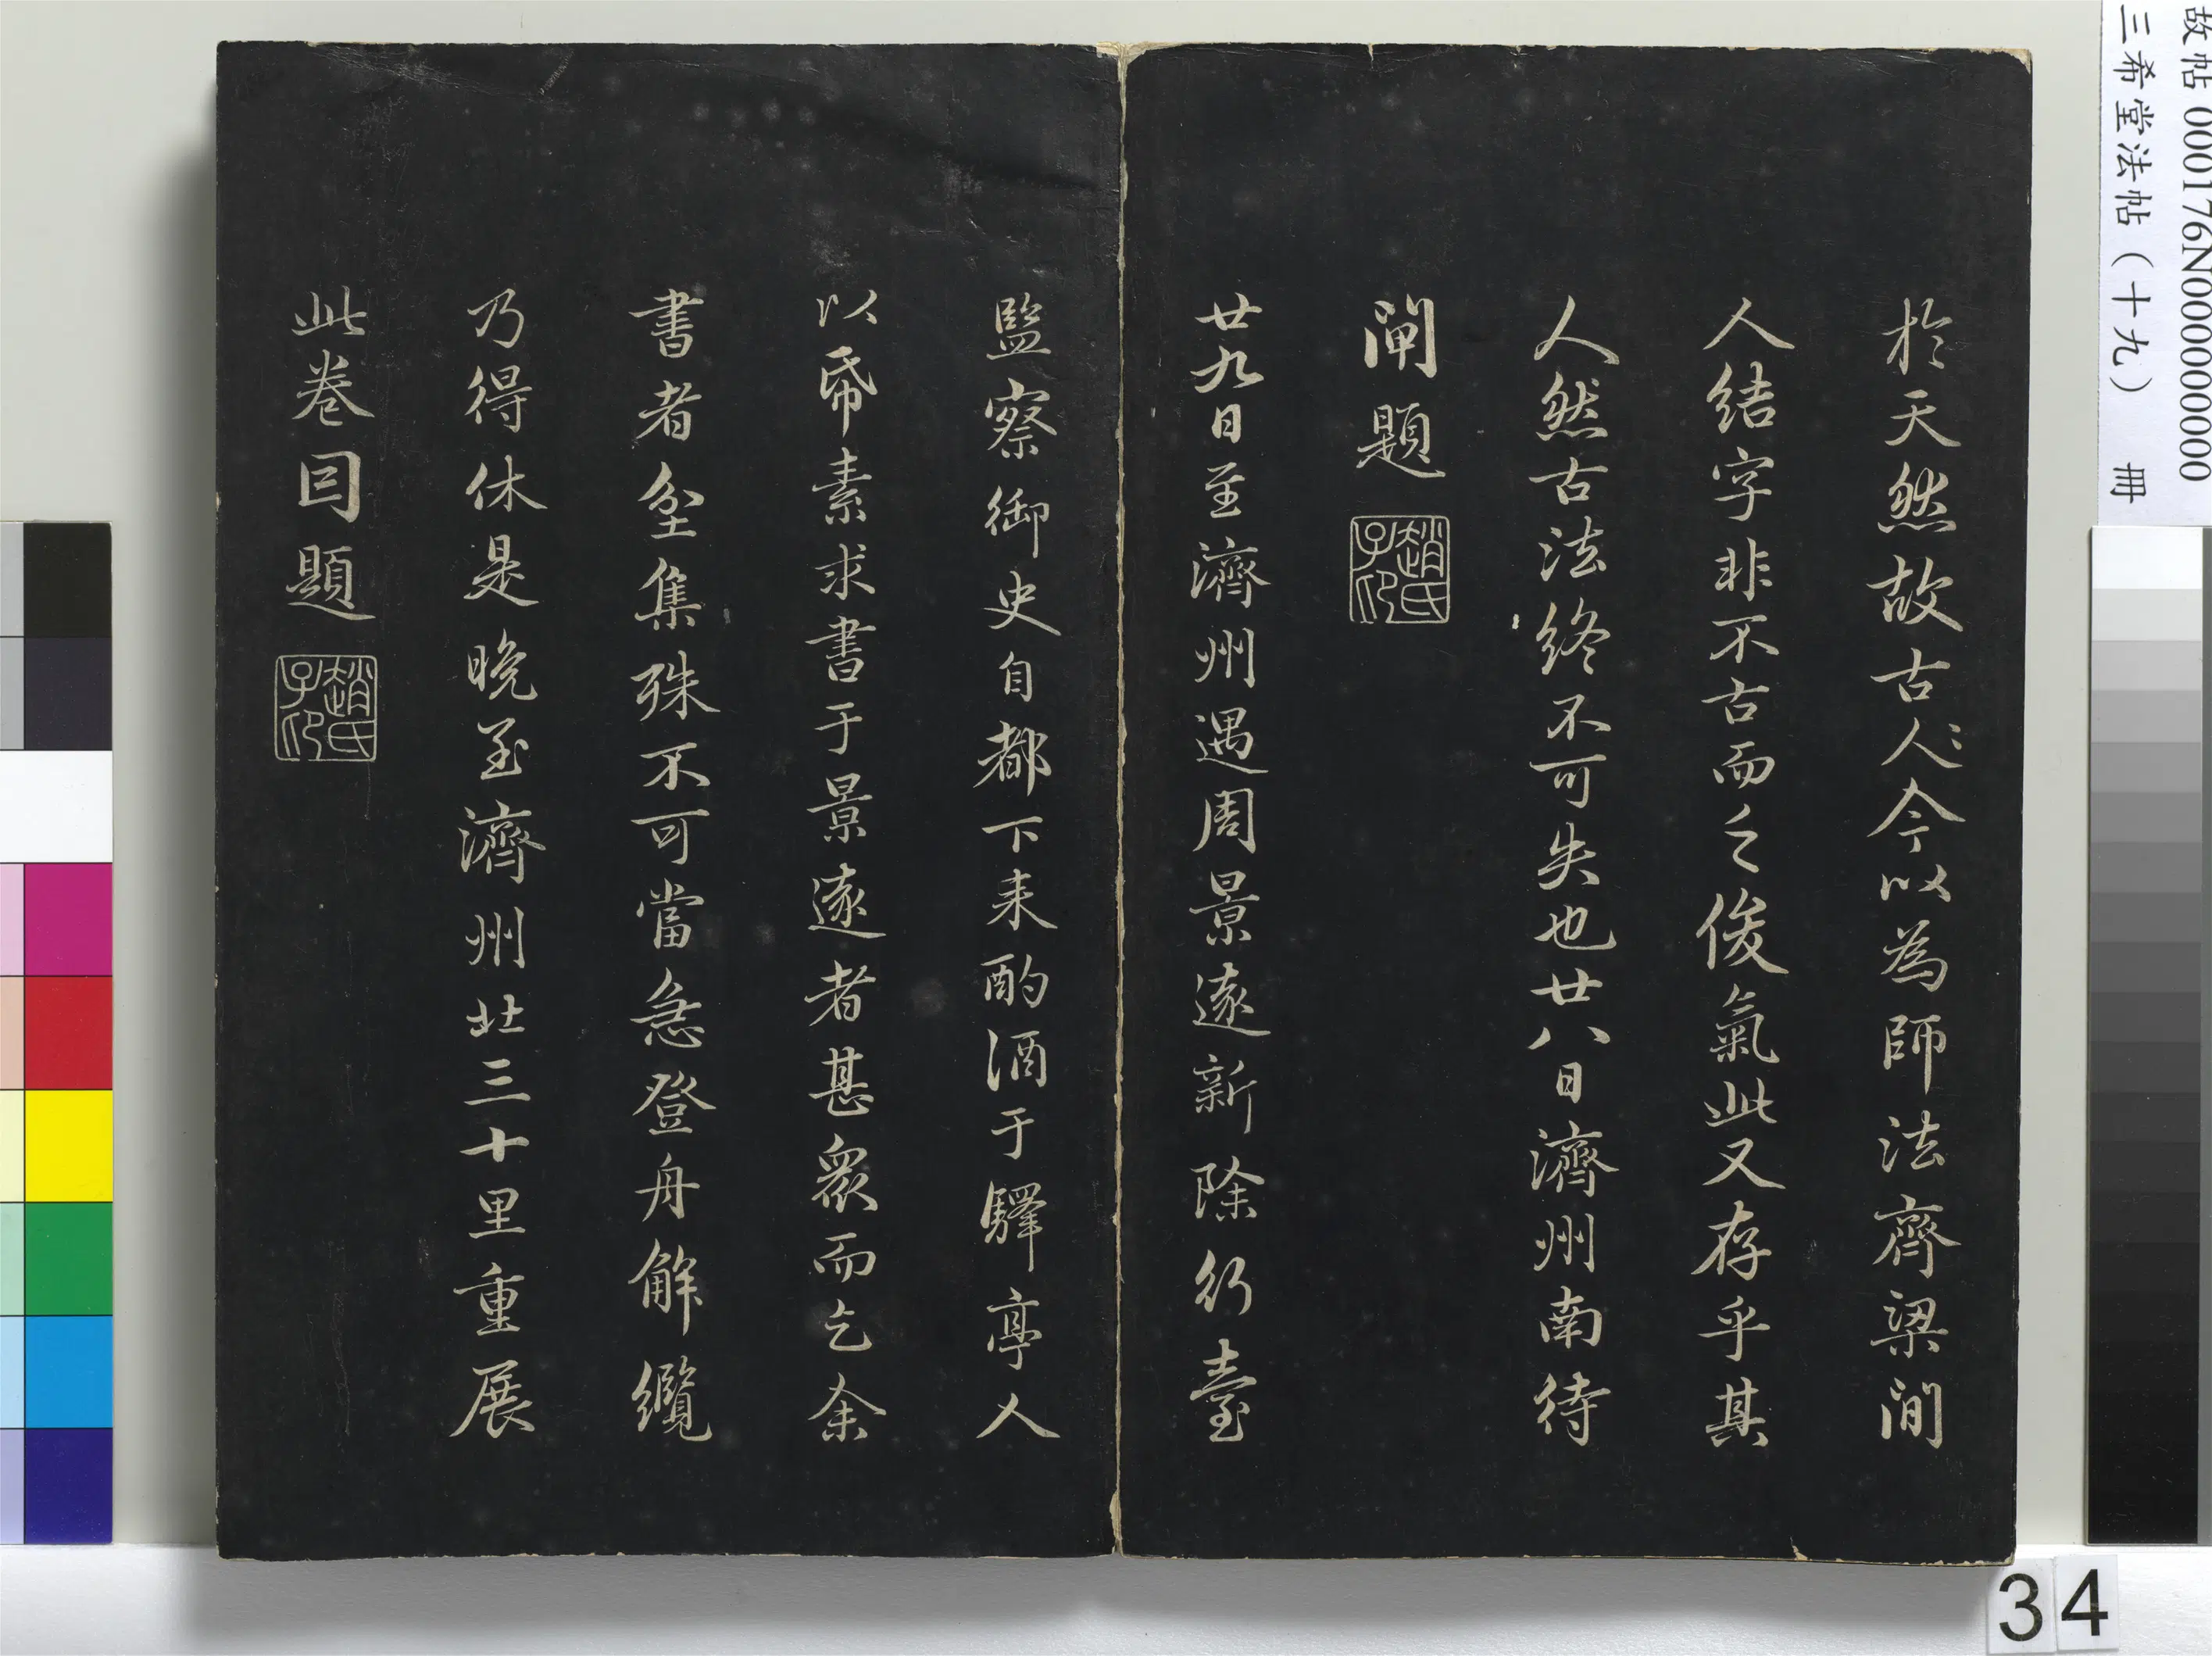 於天然故古人〻今以為師法齊梁間
人結字非不古而乏俊氣此又存乎其
人然古法終不可失也廿八日濟州南待
閘題
趙氏子印
廿九日至濟州遇周景遠新除行臺
監察御史自都下来酌酒于驛亭人
以帋素求書于景遠者甚衆而乞余
書者坌集殊不可當急登舟解纜
乃得休是晚至濟州北三十里重展
此卷因題
趙氏子印
故帖 000176N000000000
三希堂法帖（十九） 冊
34